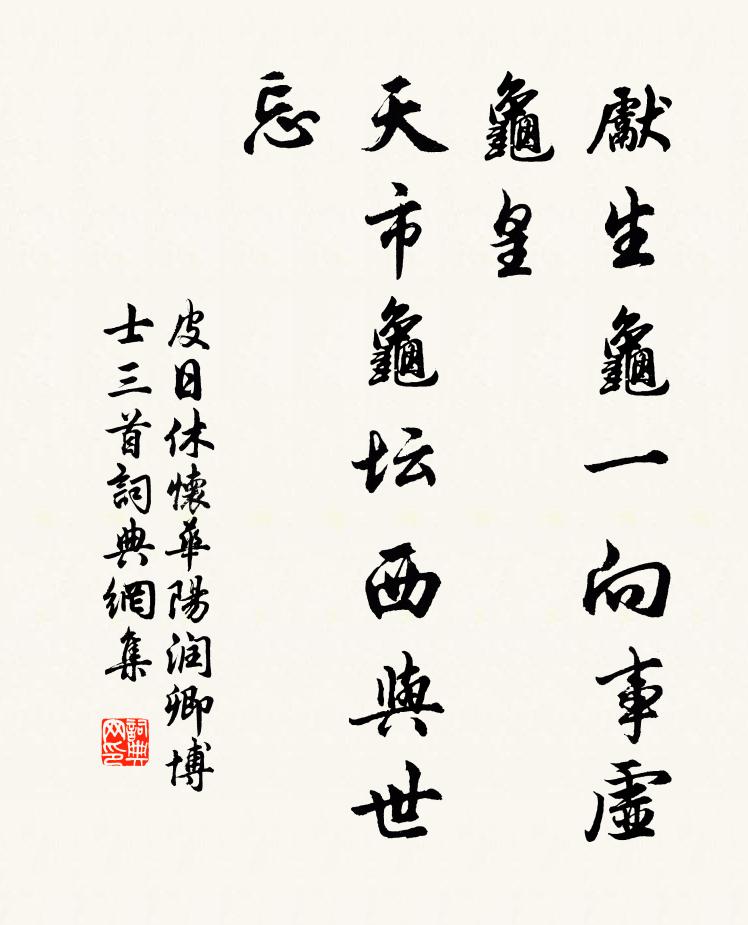 獻生龜一向事虛
龜皇
天市龜坛西與世
忘
皮日休懷華陽润卿博
士三首詞典網集
詞典
网印